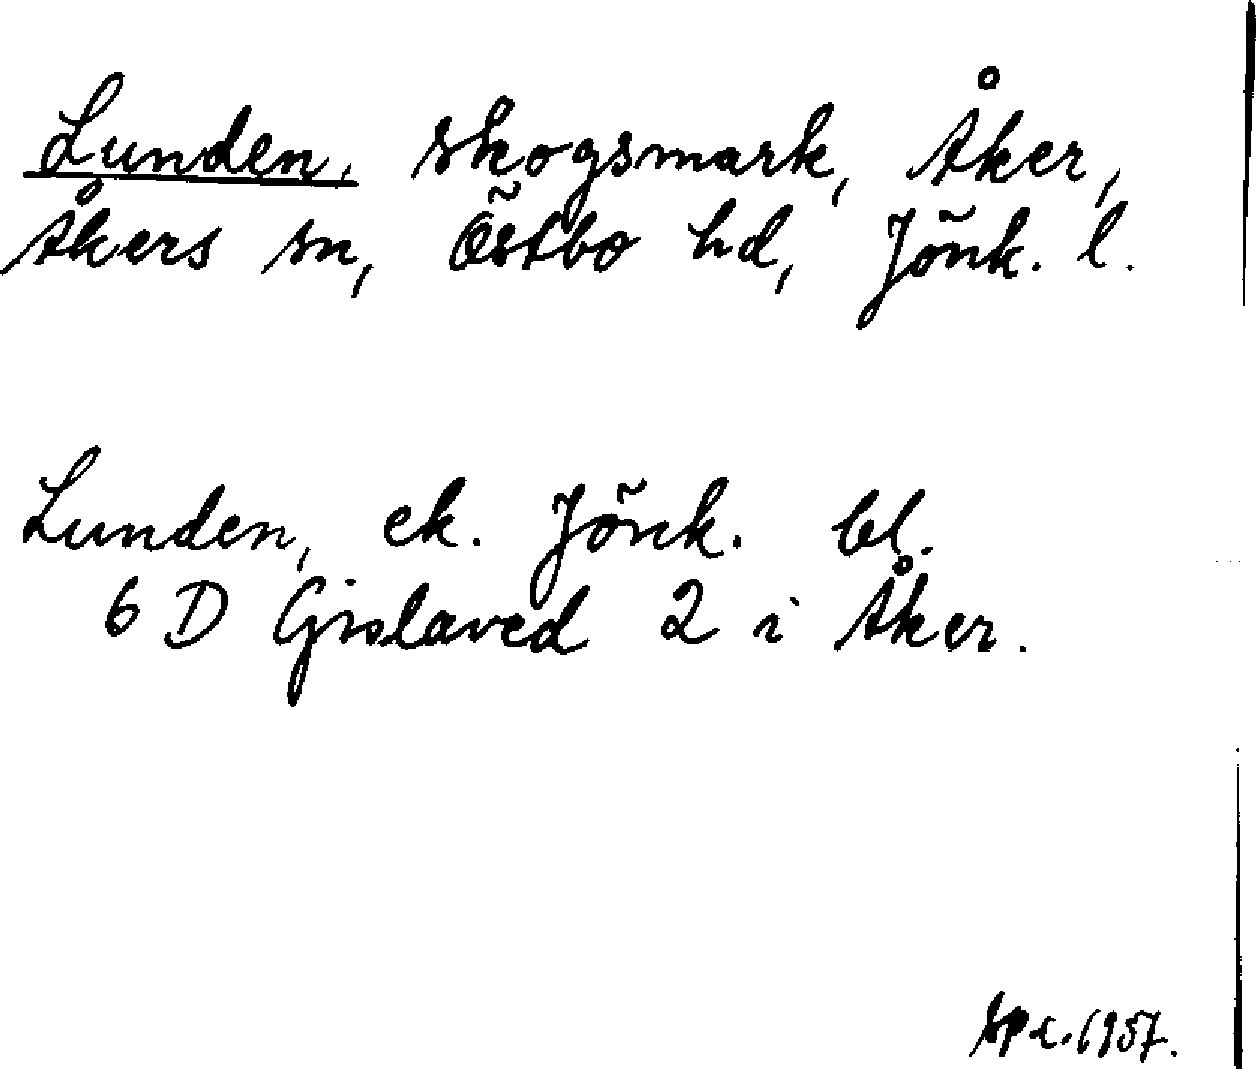 Lunden, skogsmark, Åker,
Åkers sn, Östbo hd, Jönk. l.
Lunden, ek. Jönk. bl.
6 D Gislaved 2 i Åker.
1957.